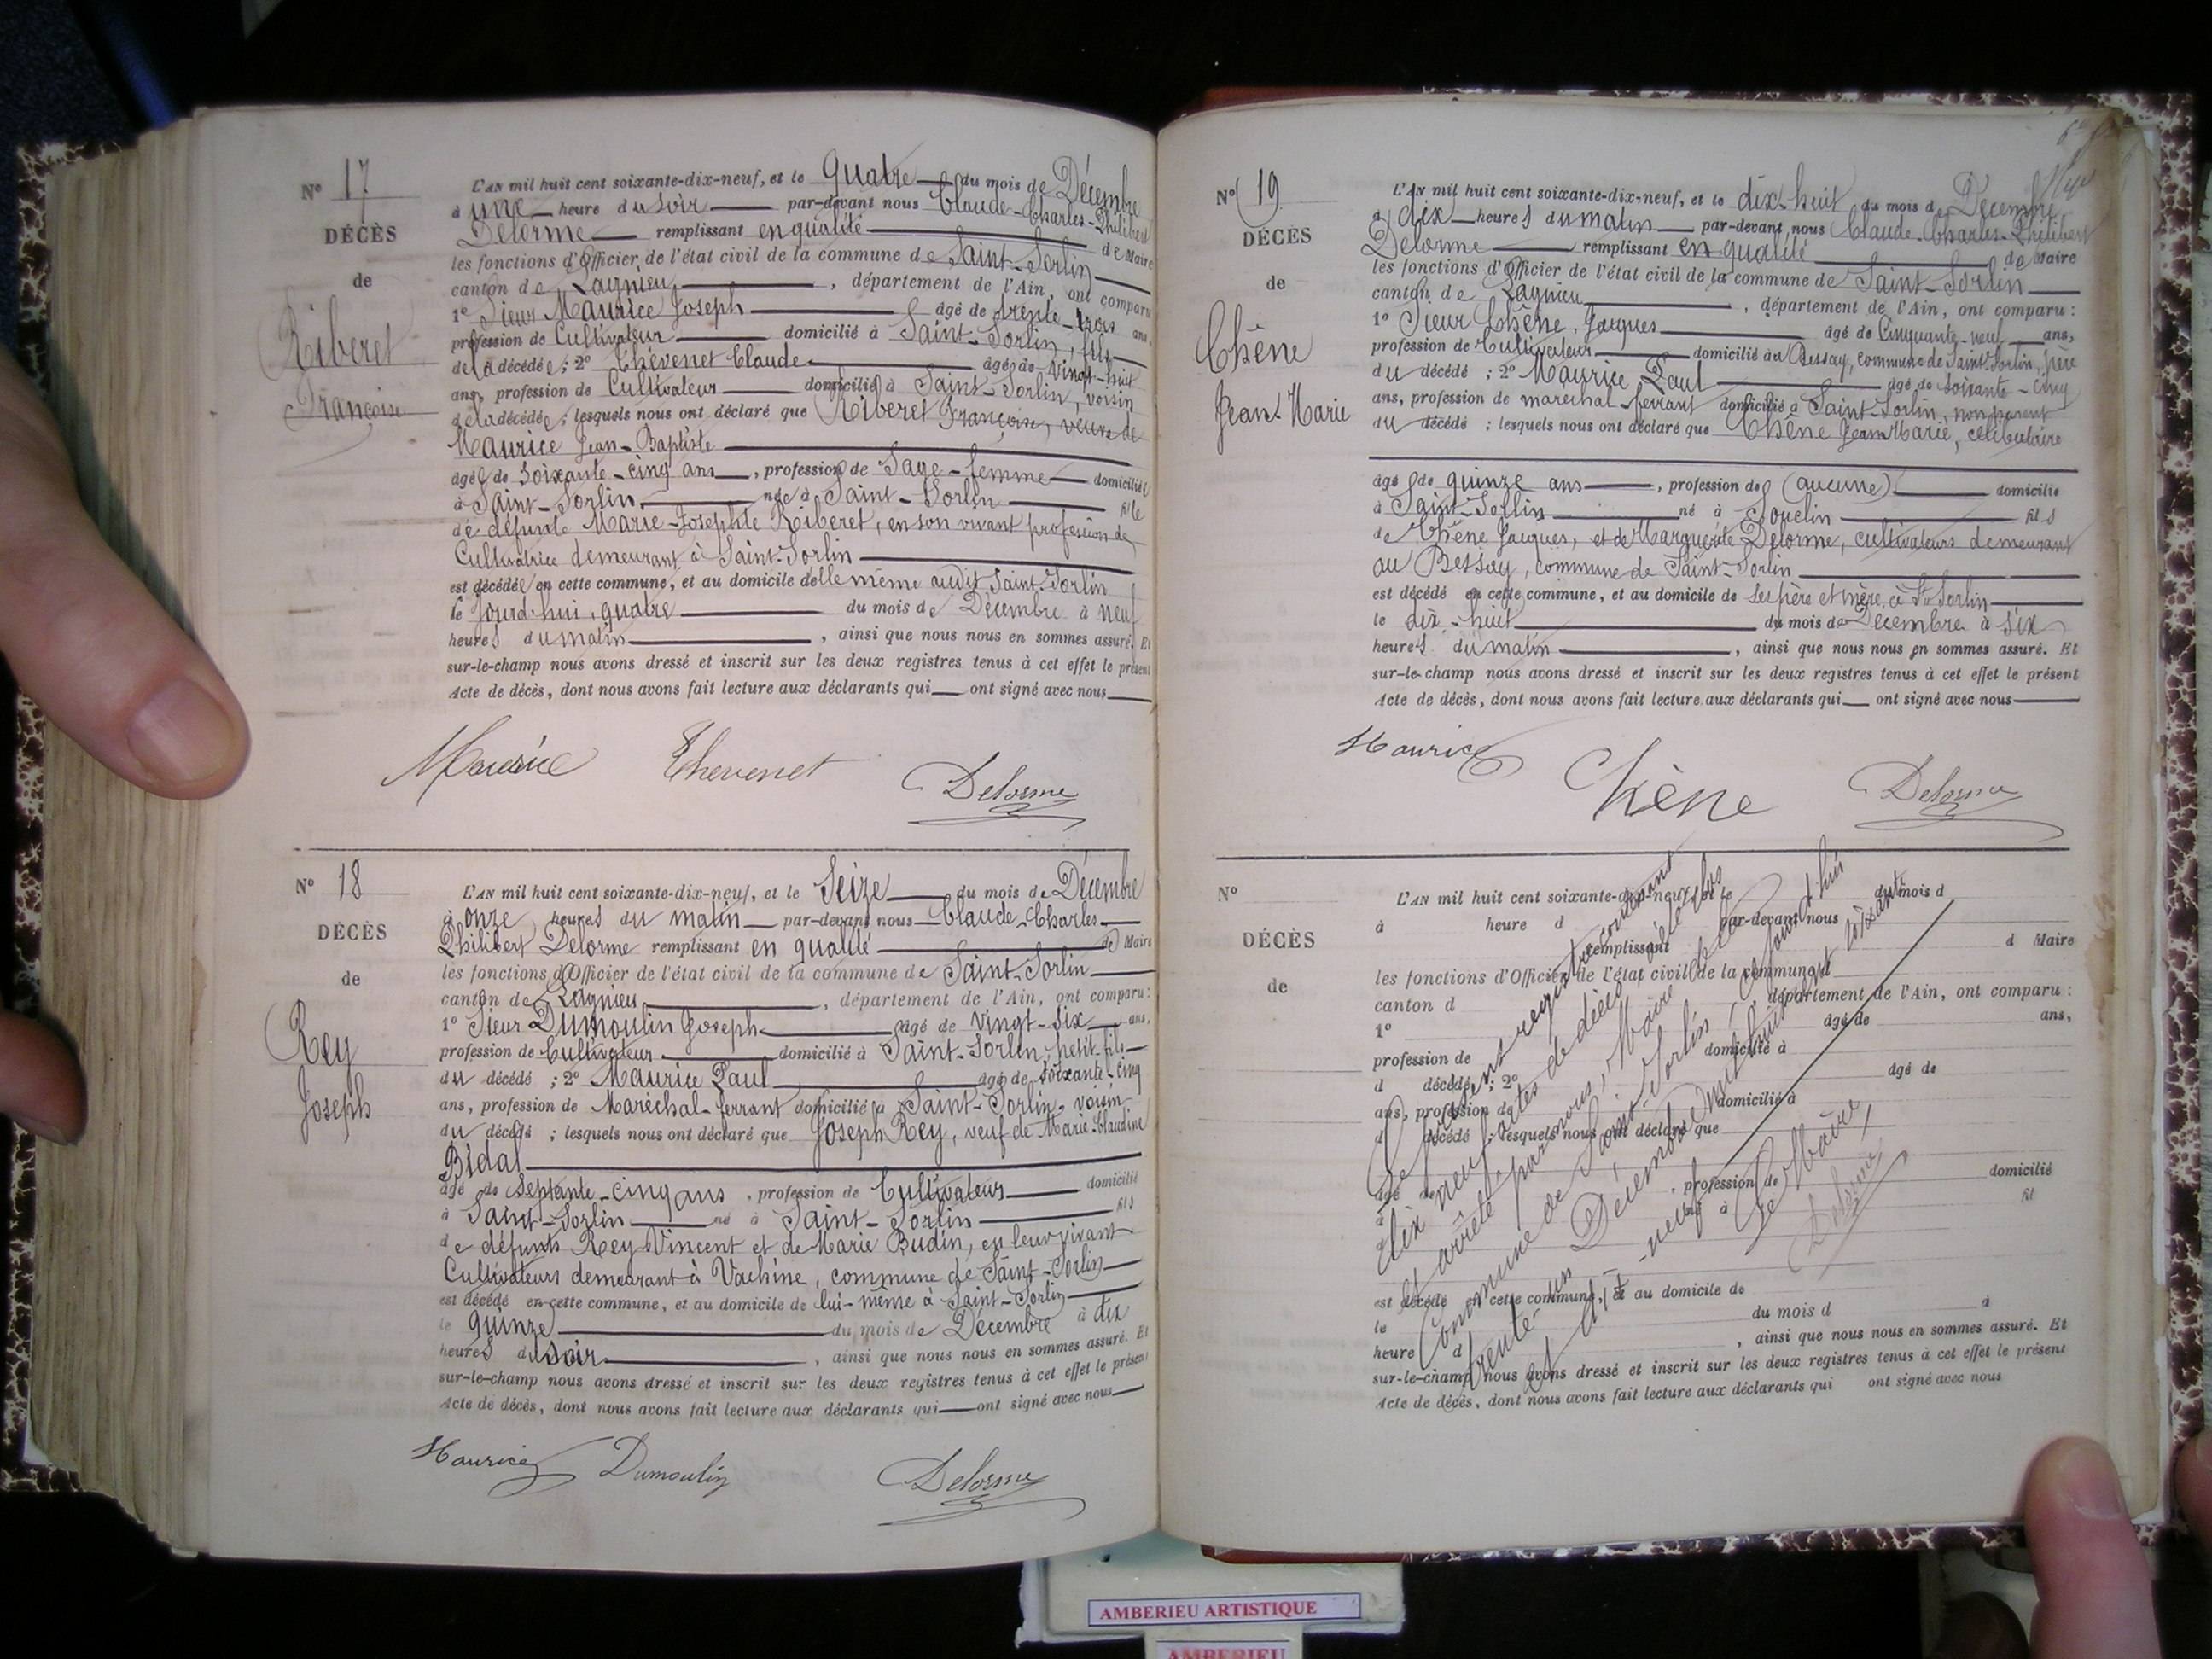 N° 17
DÉCÈS
de
Riberet
Françoise
L'AN mil huit cent soixante-dix-neuf, et le Quatre du mois de Décembre
à une heure du soir par-devant nous Claude-Charles-Philibert
Delorme remplissant en qualité de Maire
les fonctions d'Officier de l'état civil de la commune de Saint-Sorlin
canton de Lagnieu, département de l'Ain, ont comparu
1° Sieur Maurice Joseph âgé de trente-trois ans,
profession de Cultivateur domicilié à Saint-Sorlin, fils
de la décédée ; 2° Thévenet Claude âgé de vingt-huit
ans, profession de Cultivateur domicilié à Saint-Sorlin, voisin
de la décédée ; lesquels nous ont déclaré que Riberet Françoise, veuve de
Maurice Jean-Baptiste
âgée de soixante-cinq ans, profession de Sage-femme domiciliée
à Saint-Sorlin née à Saint-Sorlin fille
de défunte Marie-Josephte Riberet, en son vivant profession de
Cultivatrice demeurant à Saint-Sorlin
est décédée en cette commune, et au domicile d'elle même audit Saint-Sorlin
le jourd'hui, quatre du mois de Décembre à neuf
heures du matin, ainsi que nous nous en sommes assuré. Et
sur-le-champ nous avons dressé et inscrit sur les deux registres tenus à cet effet le présent
Acte de décès, dont nous avons fait lecture aux déclarants qui ont signé avec nous
Maurice Thevenet Delorme
N° 18
DÉCÈS
de
Rey
Joseph
L'AN mil huit cent soixante-dix-neuf, et le Seize du mois de Décembre
à onze heures du matin par-devant nous Claude-Charles
Philibert Delorme remplissant en qualité de Maire
les fonctions d'Officier de l'état civil de la commune de Saint-Sorlin
canton de Lagnieu, département de l'Ain, ont comparu :
1° Sieur Dumoulin Joseph âgé de vingt-six ans,
profession de Cultivateur domicilié à Saint-Sorlin, petit-fils
du décédé ; 2° Maurice Paul âgé de soixante-cinq
ans, profession de Maréchal-ferrant domicilié à Saint-Sorlin, voisin
du décédé ; lesquels nous ont déclaré que Joseph Rey, veuf de Marie-Claudine
Bidal
âgé de septante-cinq ans, profession de Cultivateur domicilié
à Saint-Sorlin né à Saint-Sorlin fils
de défunts Rey Vincent et de Marie Budin, en leur vivant
Cultivateurs demeurant à Vachine, commune de Saint-Sorlin
est décédé en cette commune, et au domicile de lui-même à Saint-Sorlin
le quinze du mois de Décembre à dix
heures du soir, ainsi que nous nous en sommes assuré. Et
sur-le-champ nous avons dressé et inscrit sur les deux registres tenus à cet effet le présent
Acte de décès, dont nous avons fait lecture aux déclarants qui ont signé avec nous
Maurice Dumoulin Delorme
N° 19
DÉCÈS
de
Chêne
Jean-Marie
L'AN mil huit cent soixante-dix-neuf, et le dix-huit du mois de Décembre
à dix heures du matin par-devant nous Claude-Charles-Philibert
Delorme remplissant en qualité de Maire
les fonctions d'Officier de l'état civil de la commune de Saint-Sorlin
canton de Lagnieu, département de l'Ain, ont comparu :
1° Sieur Chêne, Jacques âgé de Cinquante-neuf ans,
profession de Cultivateur domicilié au Bessay, commune de Saint-Sorlin, père
du décédé ; 2° Maurice Paul âgé de soixante-cinq
ans, profession de maréchal-ferrant domicilié à Saint-Sorlin, non parent
du décédé ; lesquels nous ont déclaré que Chêne Jean-Marie, célibataire
âgé de quinze ans, profession de (aucune) domicilié
à Saint-Sorlin né à Souclin fils
de Chêne Jacques, et de Marguerite Delorme, cultivateurs demeurant
au Bessay, commune de Saint-Sorlin
est décédé en cette commune, et au domicile de ses père et mère, à St Sorlin
le dix-huit du mois de Décembre à six
heures du matin, ainsi que nous nous en sommes assuré. Et
sur-le-champ nous avons dressé et inscrit sur les deux registres tenus à cet effet le présent
Acte de décès, dont nous avons fait lecture aux déclarants qui ont signé avec nous
Maurice Chêne Delorme
N°
DÉCÈS
de
L'AN mil huit cent soixante-dix-neuf, et le du mois d
à heure d par-devant nous
remplissant d Maire
les fonctions d'Officier de l'état civil de la commune d
canton d département de l'Ain, ont comparu :
1° âgé de ans,
profession de domicilié à
d décédé ; 2° âgé de
ans, profession de domicilié à
d décédé ; lesquels nous ont déclaré que
âgé de , profession de domicilié
à né à fil
de
est décédé en cette commune, et au domicile de
le du mois d à
heure d , ainsi que nous nous en sommes assuré. Et
sur-le-champ nous avons dressé et inscrit sur les deux registres tenus à cet effet le présent
Acte de décès, dont nous avons fait lecture aux déclarants qui ont signé avec nous
Le présent registre contenant
dix neuf actes de décès, a été clos
et arrêté par nous, Maire de la
Commune de Saint-Sorlin, ce jourd'hui
trente-un Décembre mil huit cent soixante
et dix-neuf
Le Maire,
Delorme
AMBERIEU ARTISTIQUE
AMBERIEU